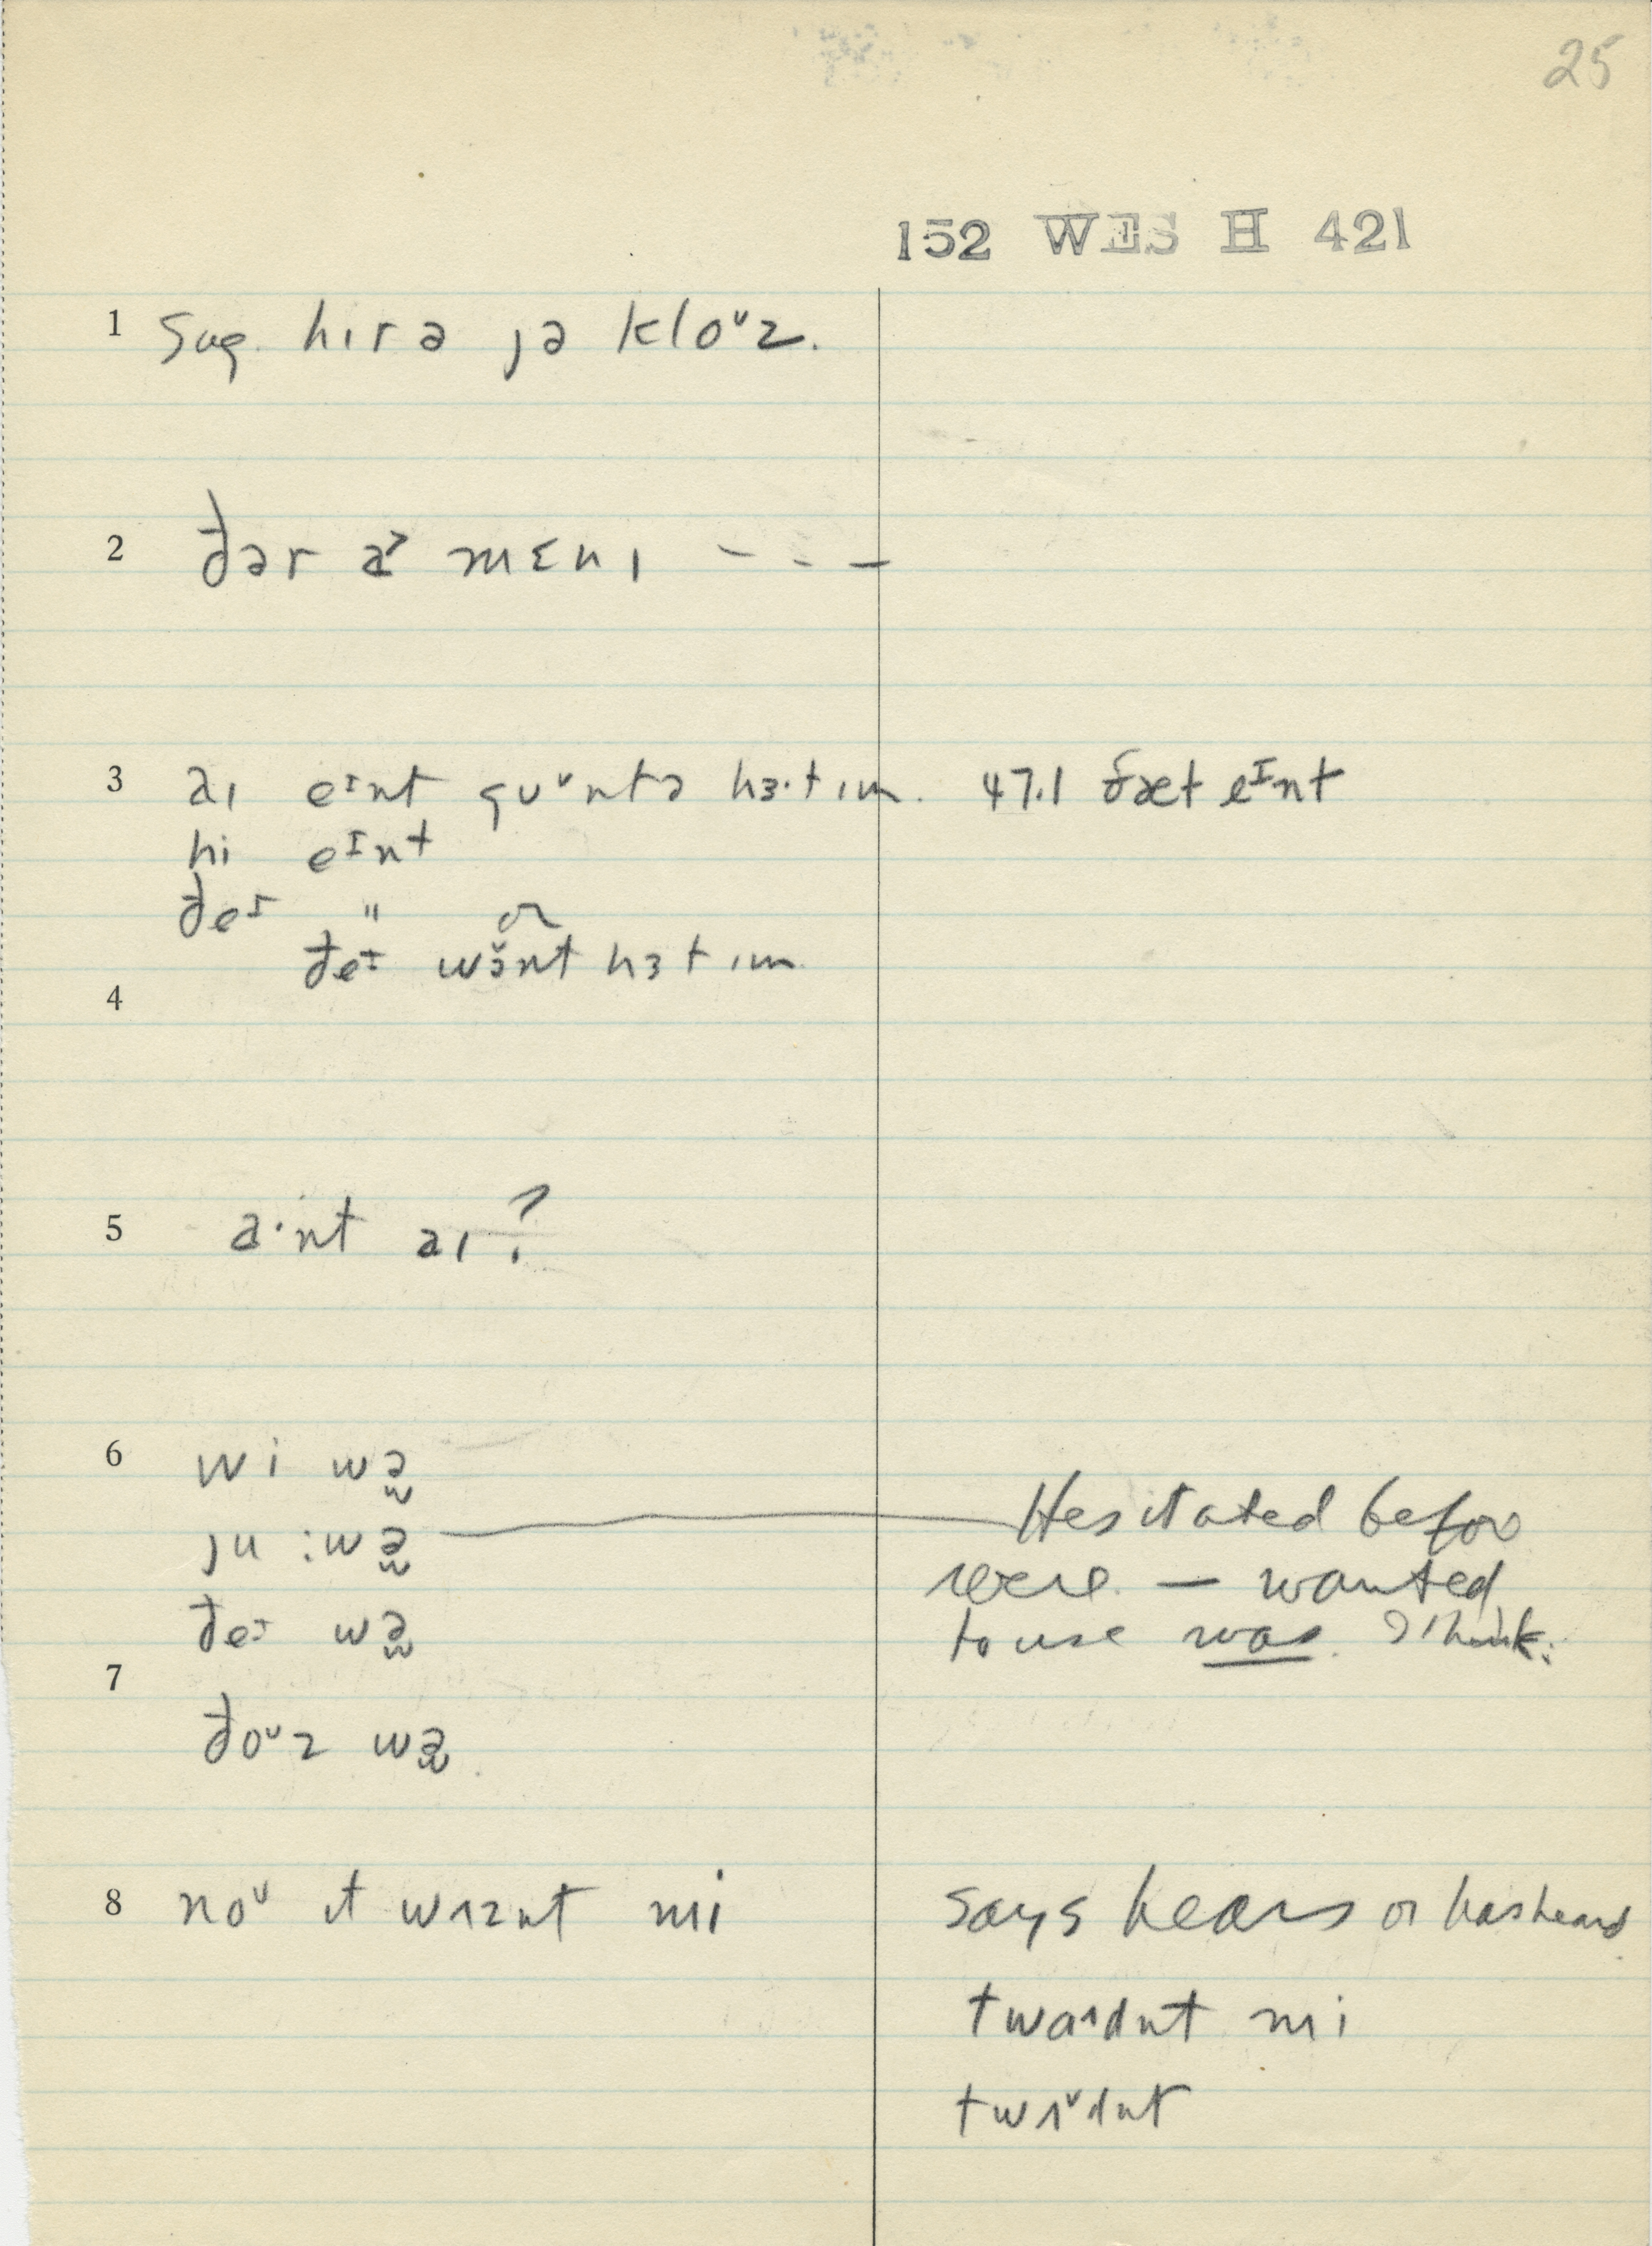 25
152 WES H 421
1 Sug. hɪr ə jə kloᵘz.
2 ðər a˃ mɛnɪ - - -
3 aɪ eᴵnt guᵛntə hɜ·t ɪm. 47.1 ðæt eᴵnt
hi eᴵnt
ðeᴵ " or
ðeᴵ wɔ̆nt hɜt ɪm
4
5 a·nt aɪ?
6 wi wə̫
ju :wə̫ Hesitated before
were — wanted
ðeᴵ wə̫ to use was. I think.
7
ðoᵘz wə̫.
8 noᵘ ɪt wʌznt mi says hears or has heard
twaʌdnt mi
twʌᵛdnt